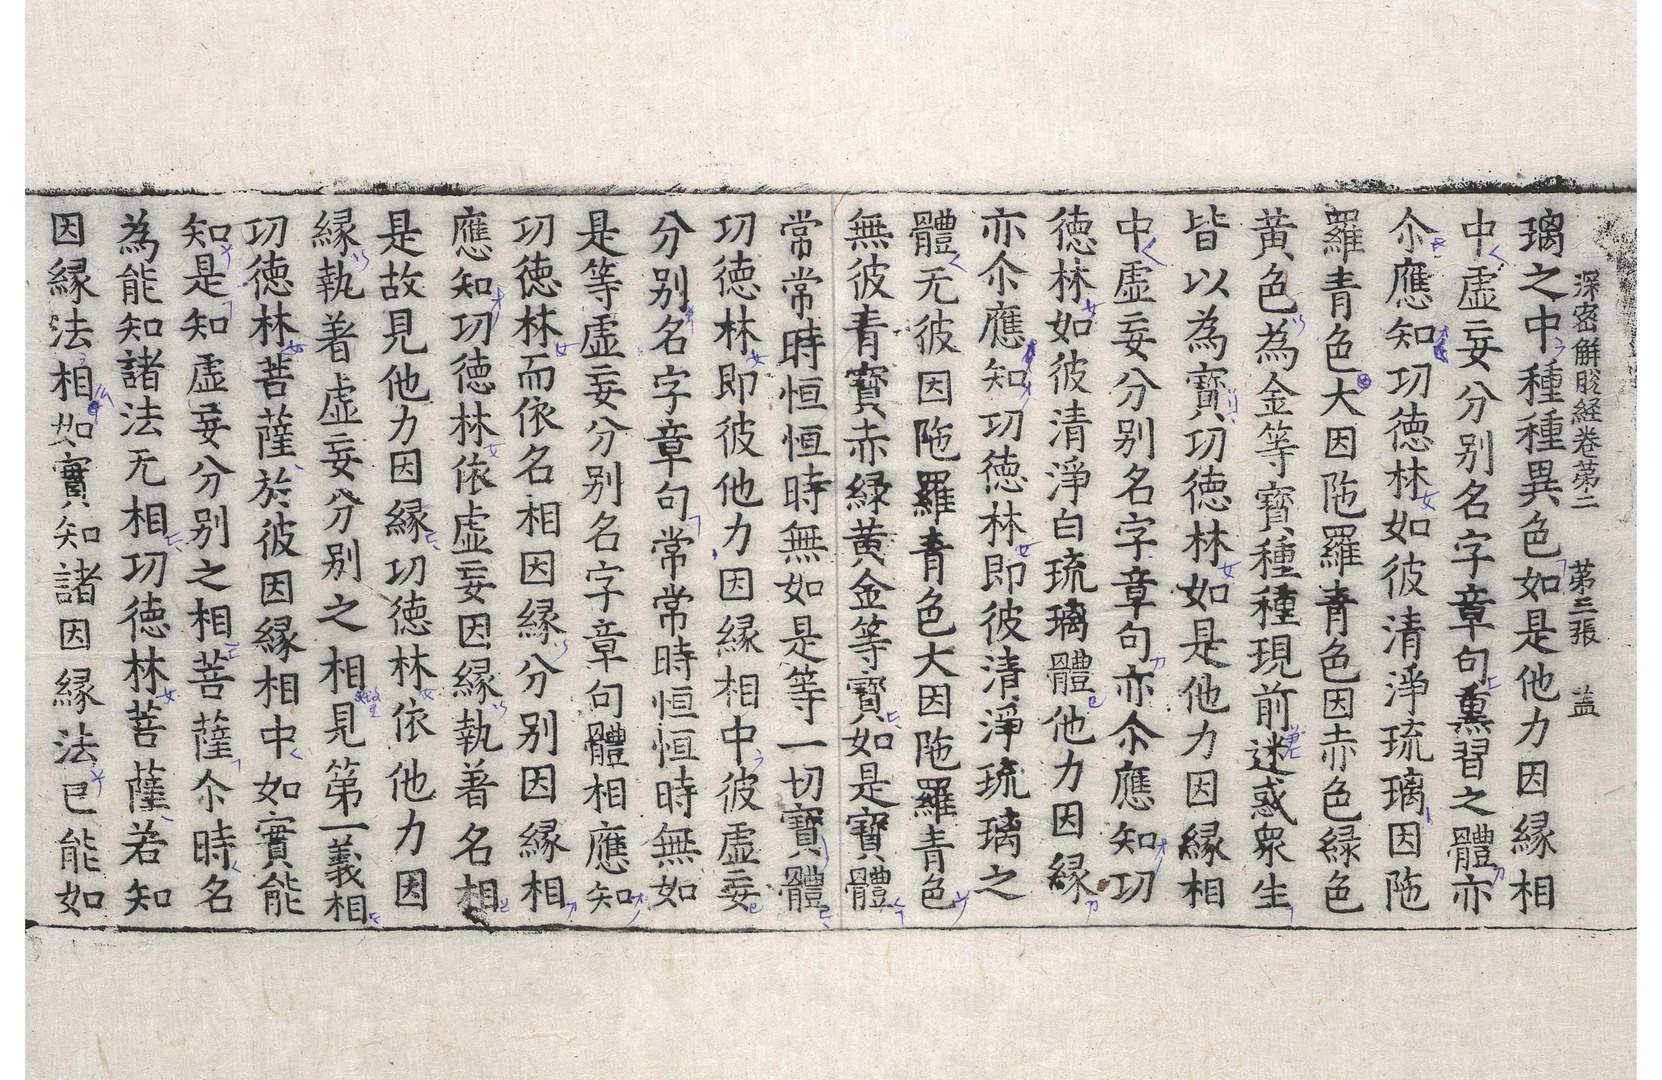 深密解脫経卷第二　第三張　盖
璃之中種種異色如是他力因縁相
中虛妄分别名字章句熏習之體亦
尒應知㓛德林如彼清淨琉璃因陁
羅青色大因陁羅青色因赤色緑色
黄色為金等寶種種現前迷惑衆生
皆以為寶㓛德林如是他力因縁相
中虛妄分别名字章句亦尒應知㓛
德林如彼清淨白琉璃體他力因縁
亦尒應知㓛德林即彼清淨琉璃之
體无彼因陁羅青色大因陁羅青色
無彼青寶赤緑黄金等寶如是寶體
常常時恒恒時無如是等一切寶體
㓛德林即彼他力因縁相中彼虛妄
分别名字章句常常時恒恒時無如
是等虛妄分别名字章句體相應知
㓛德林而依名相因縁分别因縁相
應知㓛德林依虛妄因縁執著名相
是故見他力因縁㓛德林依他力因
縁執著虛妄分别之相見第一義相
㓛德林菩薩於彼因縁相中如實能
知是知虛妄分别之相菩薩尒時名
為能知諸法无相㓛德林菩薩若知
因縁法相如實知諸因縁法已能如